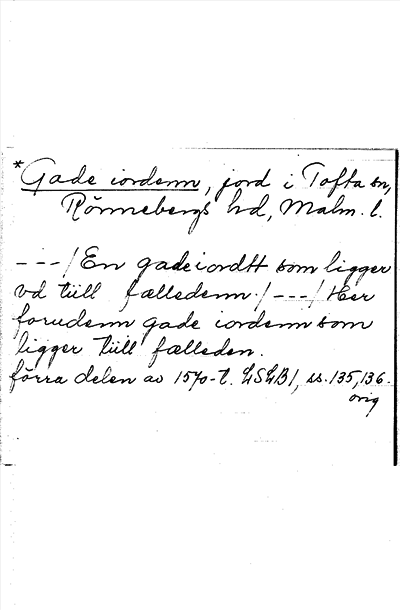 *Gade iordenn, jord i Tofta sn,
Rönnebergs hd, Malm. l.
---/En gadeiordtt som ligger
vd tiill fælledenn/---/Her
forudenn gade iordenn som
ligger tiill fælleden.
förra delen av 1570-t. LSLB1, ss. 135, 136.
orig